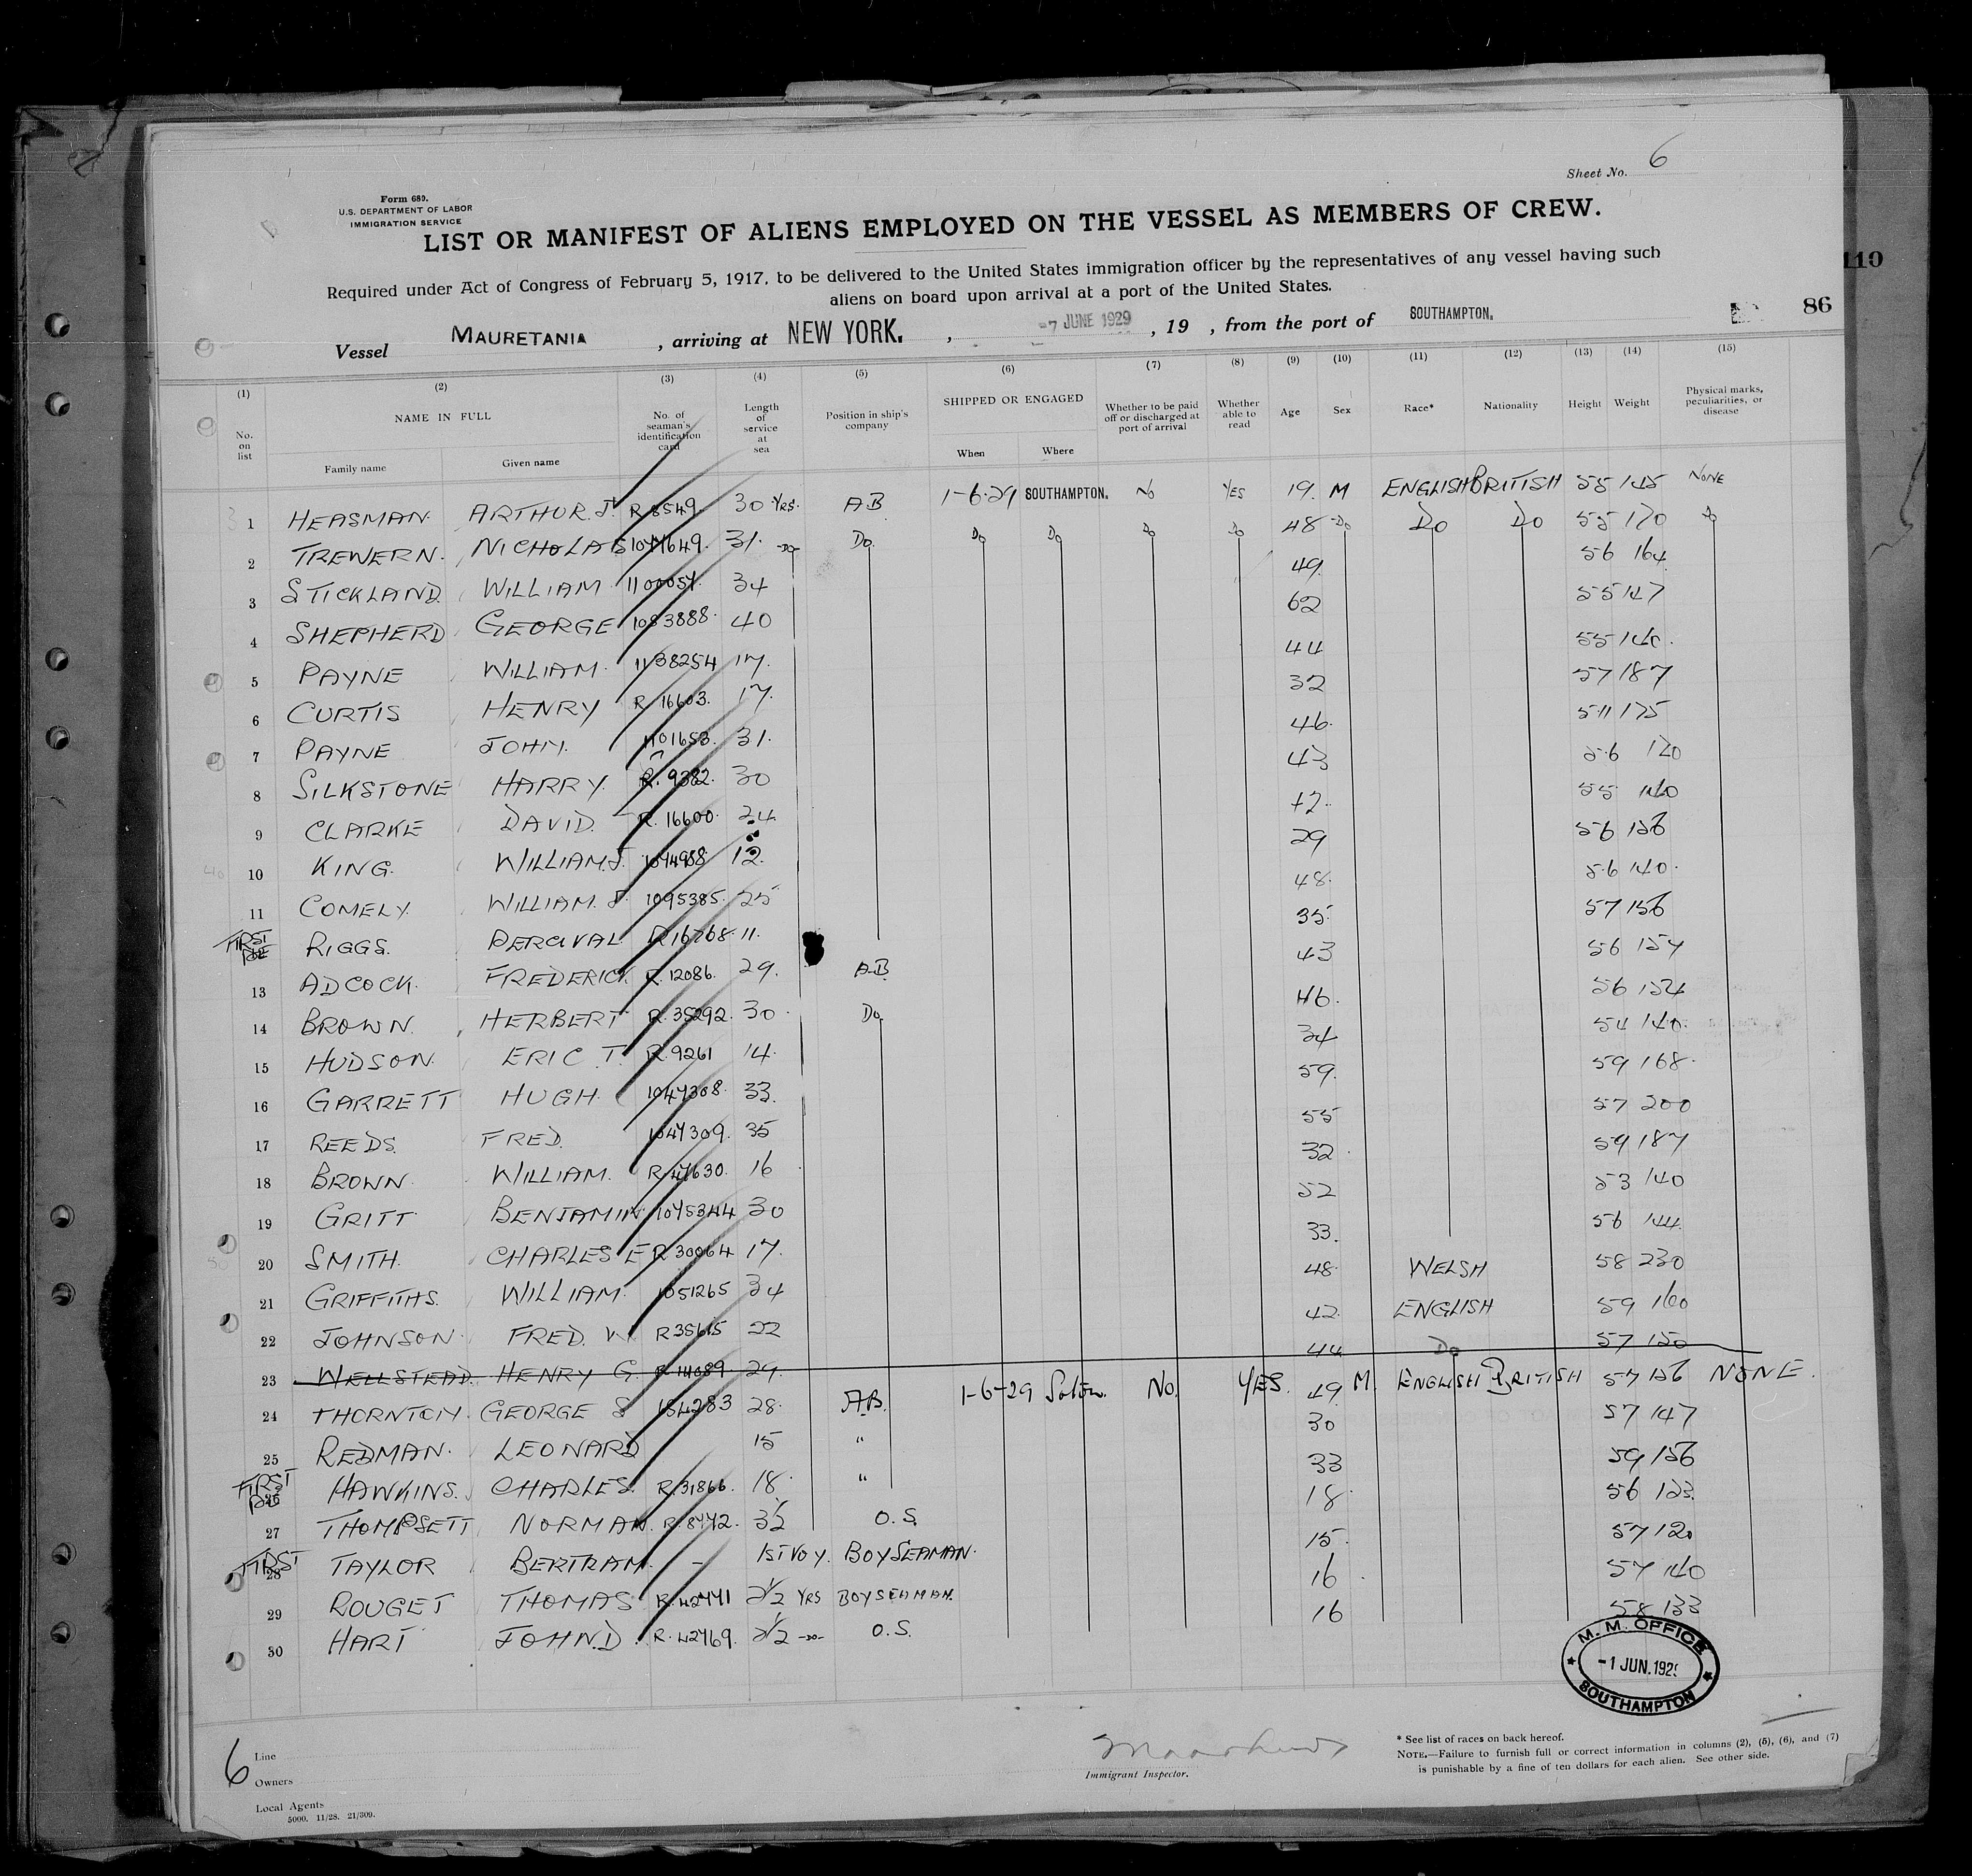 Sheet No. 6
Form 680.
U.S. DEPARTMENT OF LABOR
IMMIGRATION SERVICE
LIST OR MANIFEST OF ALIENS EMPLOYED ON THE VESSEL AS MEMBERS OF CREW.
Required under Act of Congress of February 5, 1917, to be delivered to the United States immigration officer by the representatives of any vessel having such
aliens on board upon arrival at a port of the United States.
110
86
Vessel MAURETANIA , arriving at NEW YORK. , -7 JUNE 1929 , 19 , from the port of SOUTHAMPTON.
(1) (2) (3) (4) (5) (6) (7) (8) (9) (10) (11) (12) (13) (14) (15)
No. on list NAME IN FULL Family name Given name No. of seaman's identification card Length of service at sea Position in ship's company SHIPPED OR ENGAGED When Where Whether to be paid off or discharged at port of arrival Whether able to read Age Sex Race* Nationality Height Weight Physical marks, peculiarities, or disease
1 HEASMAN. ARTHUR. J. R 8549. 30 YRS. AB 1-6-29 SOUTHAMPTON. No YES 19. M ENGLISH BRITISH 55 145 NONE
2 TREWERN. NICHOLAS 1047649. 31. -Do- Do. Do Do Do Do 48 -Do Do Do 55 170 Do
3 STICKLAND. WILLIAM 34 49. 56 164
4 SHEPHERD GEORGE 1083888. 40 62 55 147
5 PAYNE WILLIAM. 1138254 17. 44 55 140.
6 CURTIS HENRY R 16603. 17. 32 57 187
7 PAYNE JOHN. 1101653. 31. 46. 511 175
8 SILKSTONE HARRY. R. 9382. 30 43 56 170
9 CLARKE DAVID. R. 16600. 24 42. 55 140
10 KING. WILLIAM. J. 1094988 12. 29 56 156
11 COMELY. WILLIAM. J. 1095385. 25 48. 56 140.
FIRST 12 RIGGS. PERCIVAL R 16768. 11. 35. 57 156
13 ADCOCK. FREDERICK R. 12086. 29. A.B. 43 56 154
14 BROWN. HERBERT R. 35292. 30 Do. 46. 56 154
15 HUDSON. ERIC T. R. 9261 14. 34 54 140.
16 GARRETT HUGH. 1047308. 33. 59. 59 168.
17 REEDS. FRED. 1047309. 35 55 57 200
18 BROWN. WILLIAM. R. 47630. 16 32. 59 187
19 GRITT. BENJAMIN 1075344 30 52 53 140
20 SMITH. CHARLES E R 30064 17. 33. 56 144.
21 GRIFFITHS. WILLIAM. 1051265 34 48. WELSH 58 230
22 JOHNSON. FRED. W R 35615 22 42. ENGLISH 59 160
23 WELLSTEAD. HENRY G. R 14089. 29. 44 Do 57 150
24 THORNTON. GEORGE S 184283 28. A.B. 1-6-29 Soton. No. YES. 49 M. ENGLISH BRITISH 57 126 NONE.
25 REDMAN. LEONARD 15 " 30 57 147
FIRST 26 HAWKINS. CHARLES. R. 31866. 18. " 33 59 156
27 THOMPSETT NORMAN. R. 8442. 3½ O.S. 18. 56 123.
FIRST 28 TAYLOR BERTRAM. - 1ST VOY. BOY SEAMAN. 15. 57 120
29 ROUGET THOMAS R. 42471 2½ YRS BOY SEAMAN. 16. 57 140
30 HART JOHN. D. R. 42769. 2½ -DO- O.S. 16 58 133
M. M. OFFICE
-1 JUN. 1929
SOUTHAMPTON
6
Line
Owners
Local Agents
5000. 11/28. 21/309.
Immigrant Inspector.
* See list of races on back hereof.
NOTE.—Failure to furnish full or correct information in columns (2), (5), (6), and (7)
is punishable by a fine of ten dollars for each alien. See other side.